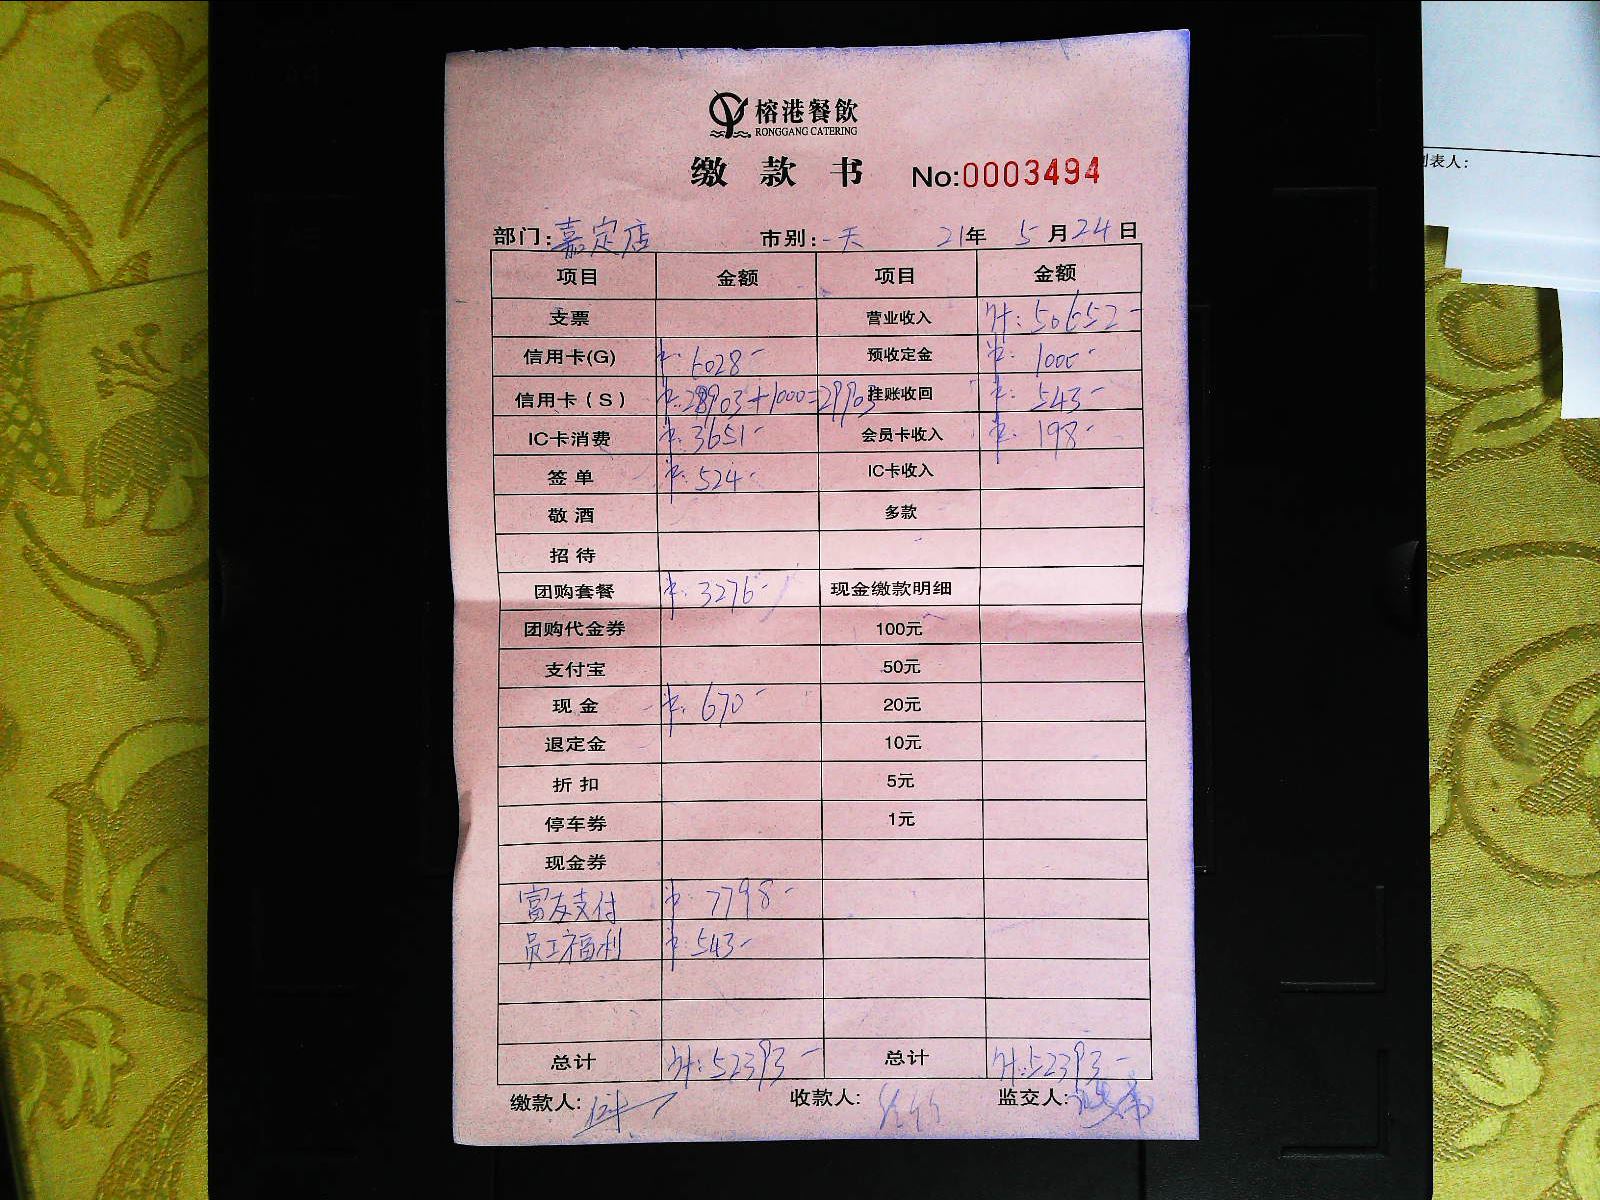 榕港餐飲
RONGGANG CATERING
缴款书 No:0003494
部门:嘉定店 市别:一天 21年 5月24日
项目 金额 项目 金额
支票 营业收入 计:50652-
信用卡(G) 卡:6028- 预收定金 卡:1000-
信用卡(S) 卡:28903+1000=29903 挂账收回 卡:543-
IC卡消费 卡:3651- 会员卡收入 卡:198-
签单 卡:524- IC卡收入
敬酒 多款
招待
团购套餐 卡:3276- 现金缴款明细
团购代金券 100元
支付宝 50元
现金 卡:670- 20元
退定金 10元
折扣 5元
停车券 1元
现金券
富友支付 卡:7798-
员工福利 卡:543-
总计 计:52393- 总计 计:52393-
缴款人: 收款人: 监交人:
制表人: